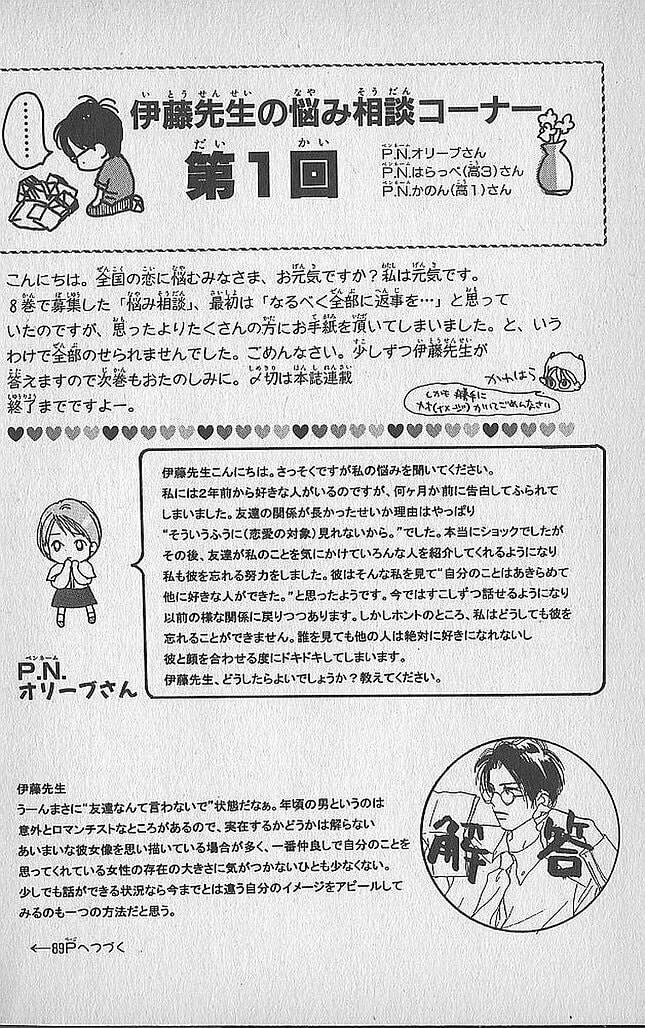 ・・・・・・
伊藤先生の悩み相談コーナー
第1回
P.N.オリーブさん
P.N.はらっぺ(高3)さん
P.N.かのん(高1)さん
こんにちは。全国の恋に悩むみなさま、お元気ですか?私は元気です。
8巻で募集した「悩み相談」、最初は「なるべく全部に返事を…」と思って
いたのですが、思ったよりたくさんの方にお手紙を頂いてしまいました。と、いう
わけで全部のせられませんでした。ごめんなさい。少しずつ伊藤先生が
答えますので次巻もおたのしみに。〆切は本誌連載
終了までですよー。
かわはら
しかも勝手に
かいてごめんなさい
伊藤先生こんにちは。さっそくですが私の悩みを聞いてください。
私には2年前から好きな人がいるのですが、何ヶ月か前に告白してふられて
しまいました。友達の関係が長かったせいか理由はやっぱり
“そういうふうに(恋愛の対象)見れないから。”でした。本当にショックでしたが
その後、友達が私のことを気にかけていろんな人を紹介してくれるようになり
私も彼を忘れる努力をしました。彼はそんな私を見て“自分のことはあきらめて
他に好きな人ができた。”と思ったようです。今ではすこしずつ話せるようになり
以前の様な関係に戻りつつあります。しかしホントのところ、私はどうしても彼を
忘れることができません。誰を見ても他の人は絶対に好きになれないし
彼と顔を合わせる度にドキドキしてしまいます。
伊藤先生、どうしたらよいでしょうか?教えてください。
P.N.
オリーブさん
伊藤先生
うーんまさに“友達なんて言わないで”状態だなぁ。年頃の男というのは
意外とロマンチストなところがあるので、実在するかどうかは解らない
あいまいな彼女像を思い描いている場合が多く、一番仲良しで自分のことを
思ってくれている女性の存在の大きさに気がつかないひとも少なくない。
少しでも話ができる状況なら今までとは違う自分のイメージをアピールして
みるのも一つの方法だと思う。
解答
←89Pへつづく